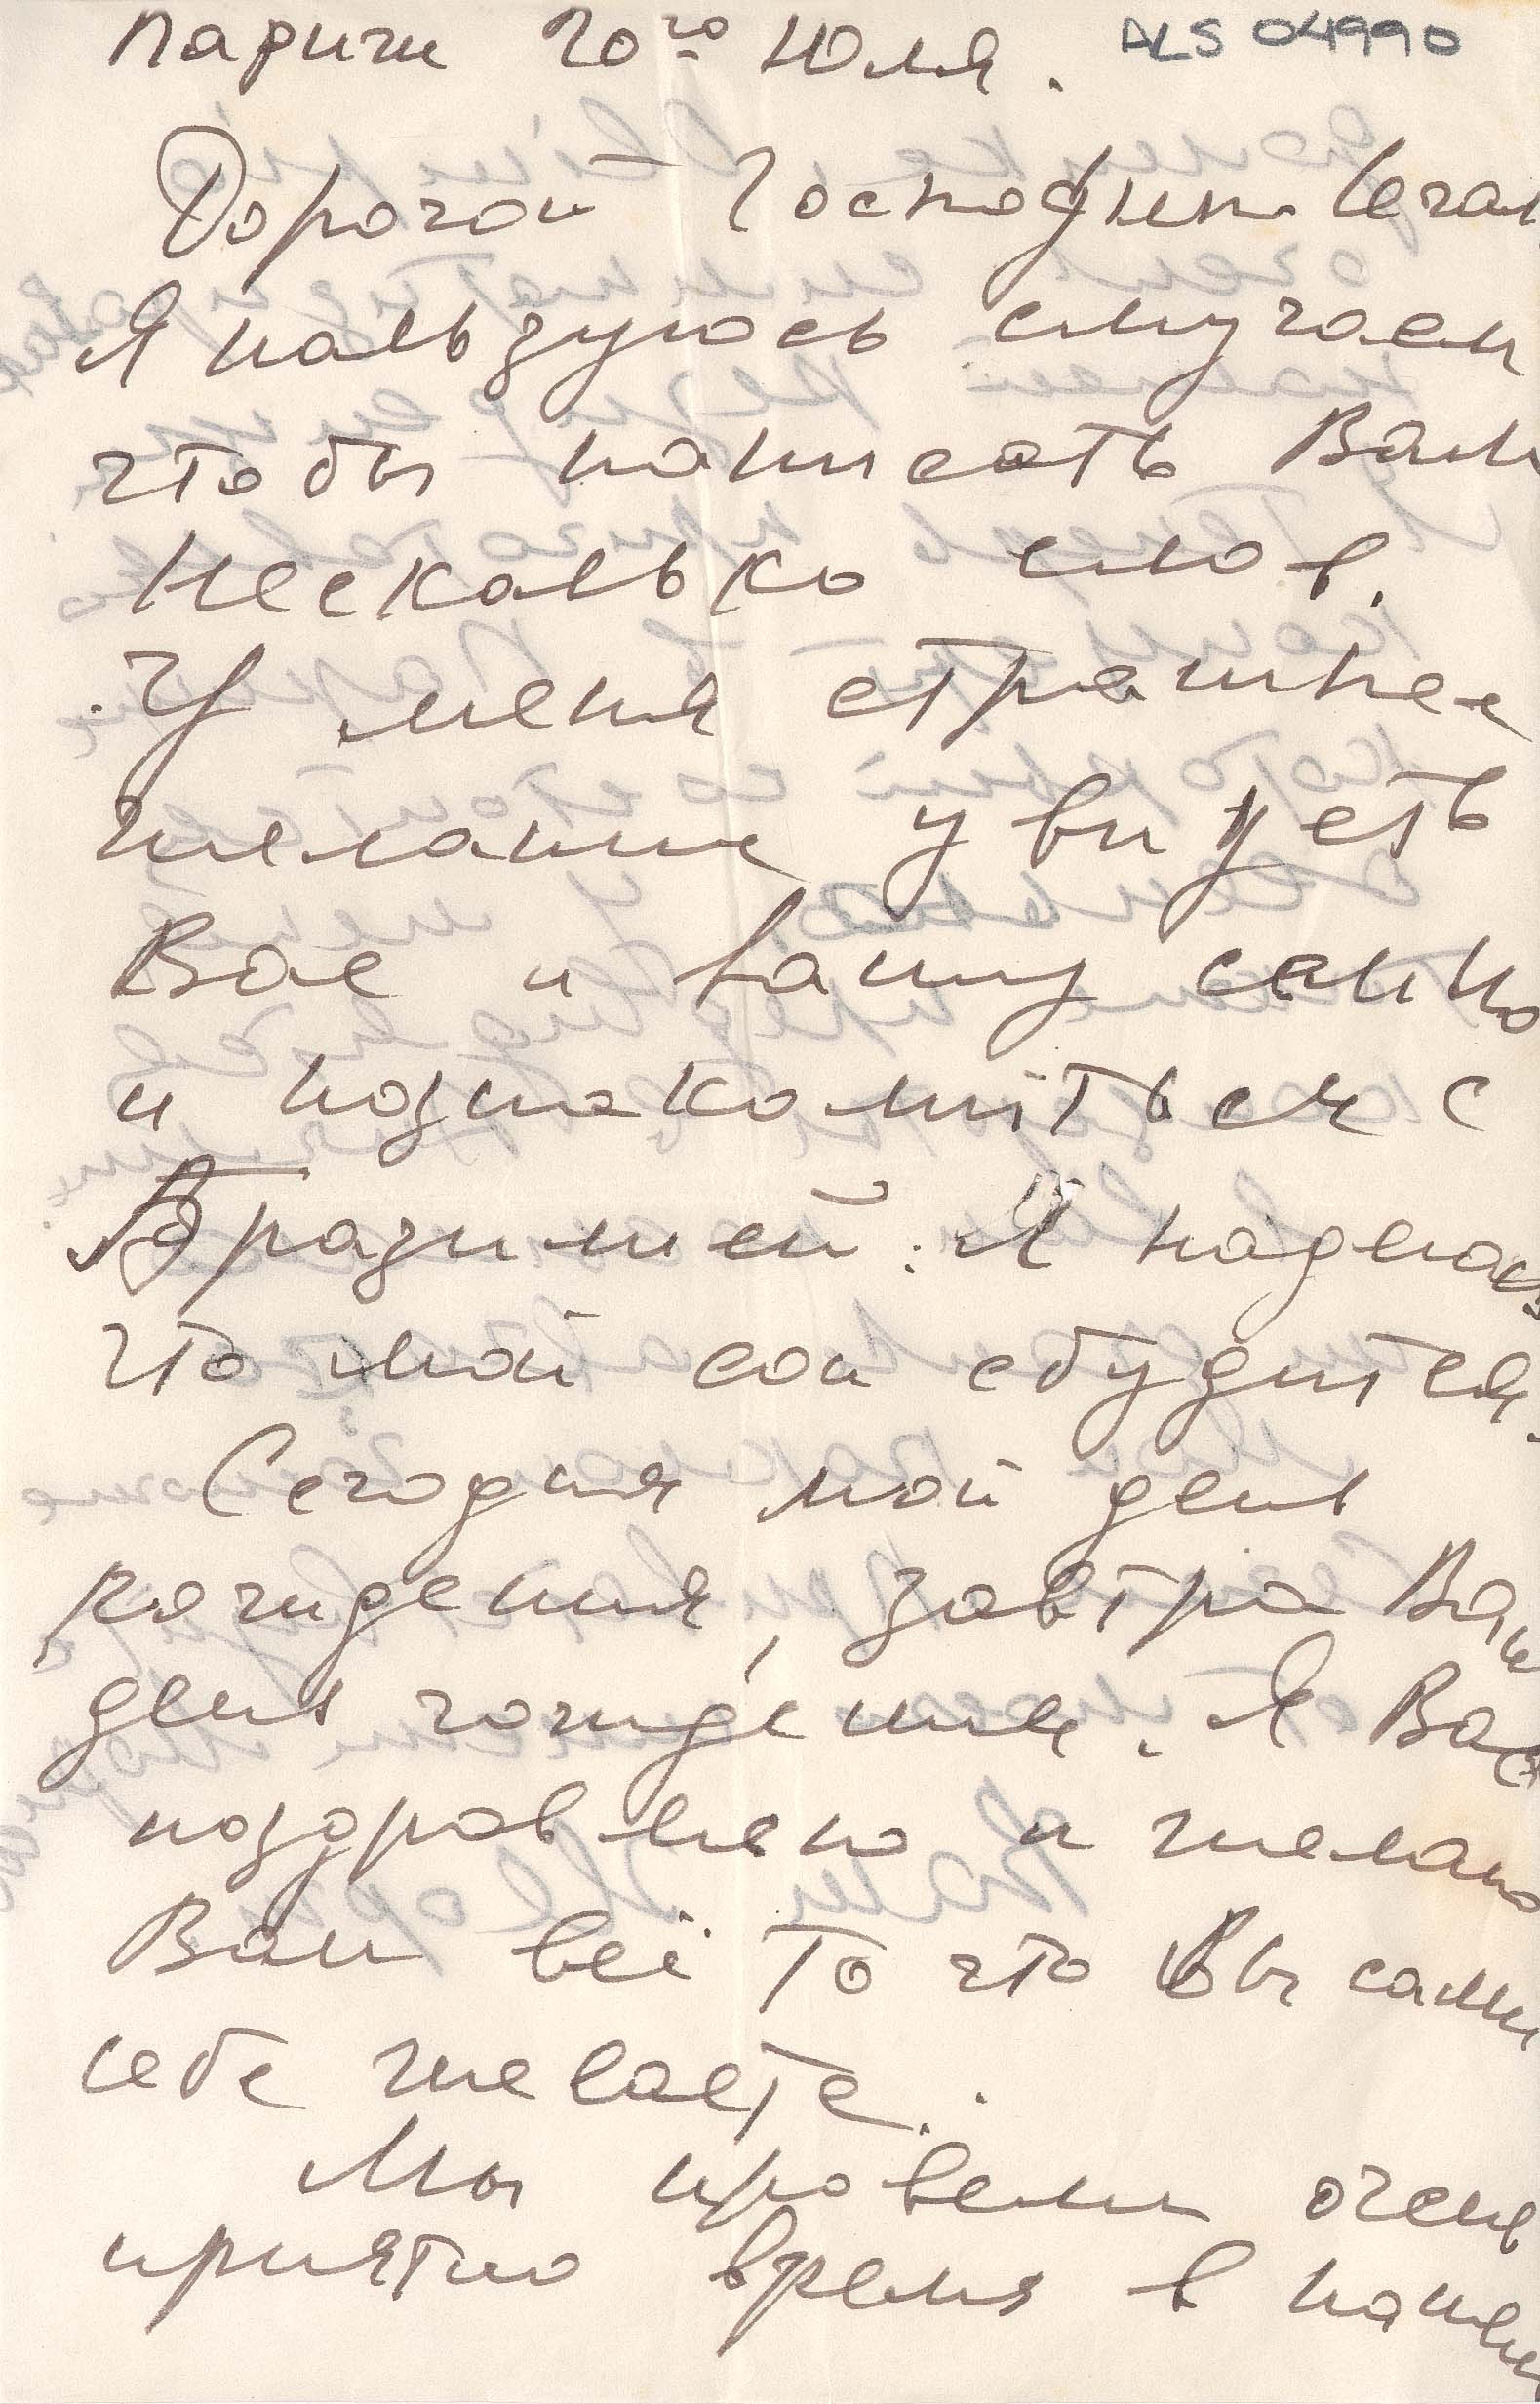 Париж 20го Юля. ALS 04990
Дорогой Господин Сегал
Я пользуюсь случаем
чтобы написать Вам
несколько слов.
У меня страшное
желание увидеть
Вас и вашу семью
и познакомиться с
Бразилией. Я надеюсь
что мой сон сбудится.
Сегодня мой день
рождения, завтра Ваш
день рождения. Я Вас
поздравляю и желаю
Вам всё то что Вы сами
себе желаете.
Мы провели очень
приятно время в нашем